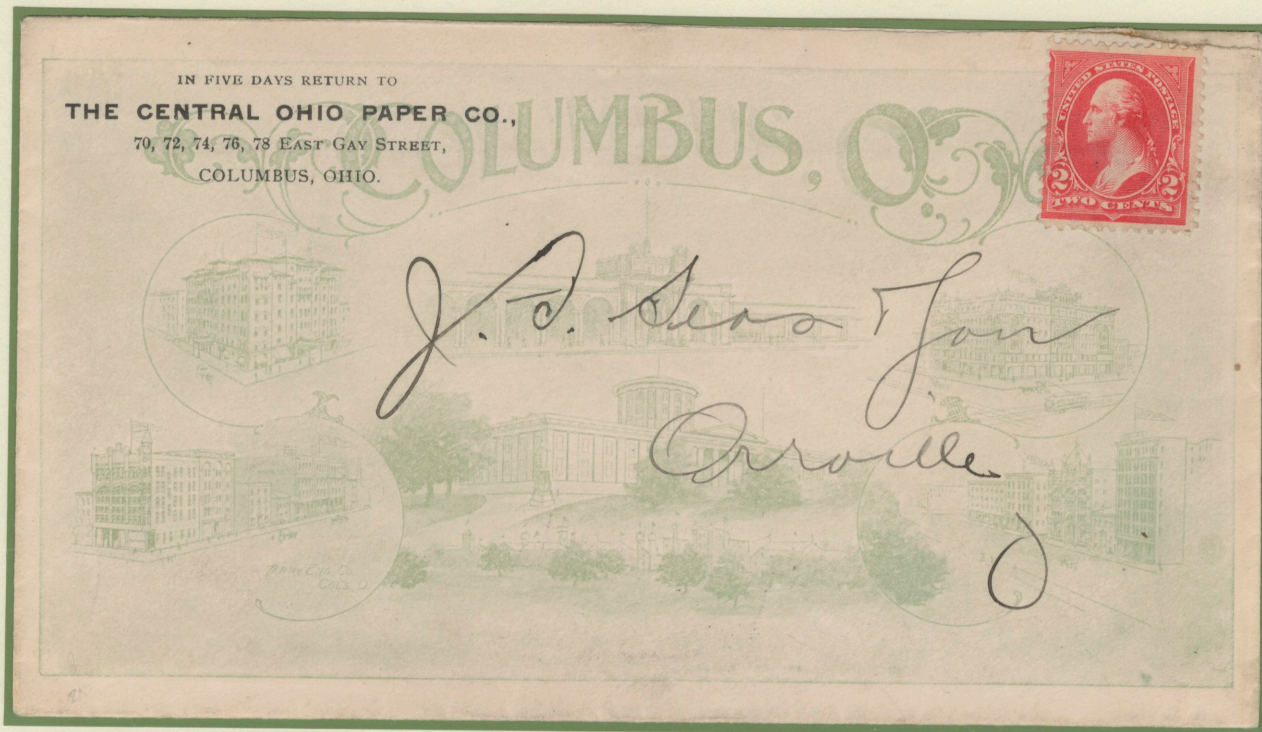 IN FIVE DAYS RETURN TO
THE CENTRAL OHIO PAPER CO.,
70, 72, 74, 76, 78 EAST GAY STREET,
COLUMBUS, OHIO.
COLUMBUS, O.
UNITED STATES POSTAGE
2 2
TWO CENTS
J. D. Seas & Son
Orrville
O